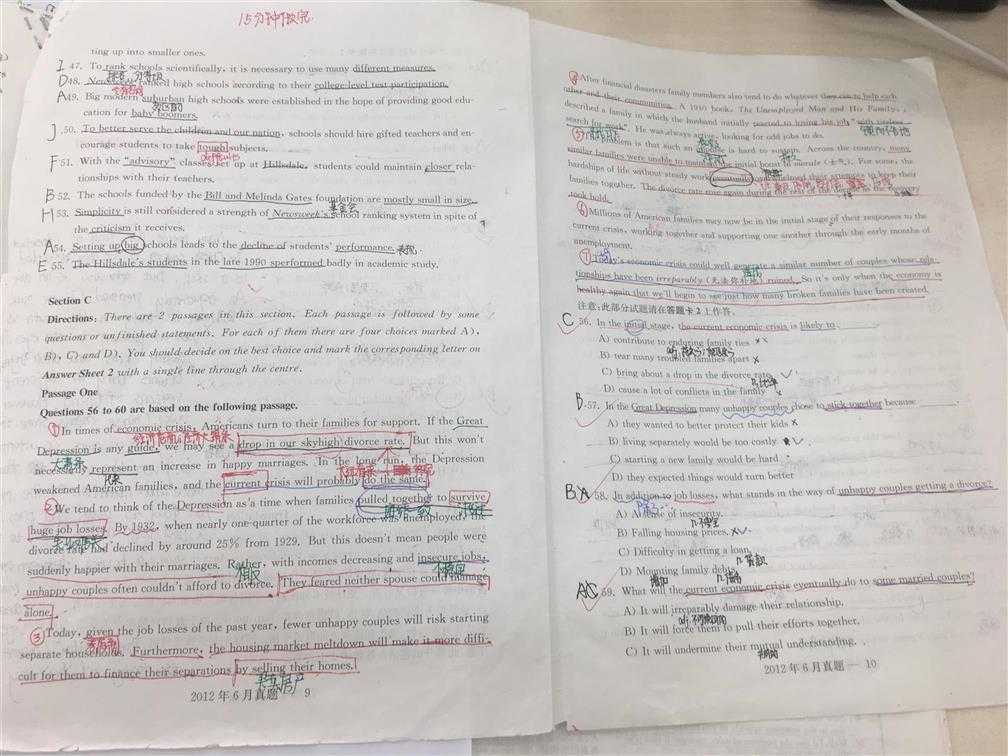 15分钟做完
ting up into smaller ones.
I 47. To rank schools scientifically, it is necessary to use many different measures.
D 48. Newsweek ranked high schools according to their college-level test participation.
A 49. Big modern suburban high schools were established in the hope of providing good edu-
cation for baby boomers.
J 50. To better serve the children and our nation, schools should hire gifted teachers and en-
courage students to take tough subjects.
F 51. With the "advisory" classes set up at Hillsdale, students could maintain closer rela-
tionships with their teachers.
B 52. The schools funded by the Bill and Melinda Gates foundation are mostly small in size.
基金会
H 53. Simplicity is still considered a strength of Newsweek's school ranking system in spite of
the criticism it receives.
A 54. Setting up big schools leads to the decline of students' performance. 表现
E 55. The Hillsdale's students in the late 1990 sperformed badly in academic study.
Section C
Directions: There are 2 passages in this section. Each passage is followed by some
questions or unfinished statements. For each of them there are four choices marked A),
B), C) and D). You should decide on the best choice and mark the corresponding letter on
Answer Sheet 2 with a single line through the centre.
Passage One
Questions 56 to 60 are based on the following passage.
① In times of economic crisis, Americans turn to their families for support. If the Great
Depression is any guide, we may see a drop in our skyhigh divorce rate. But this won't
大萧条
necessarily represent an increase in happy marriages. In the long run, the Depression
weakened American families, and the current crisis will probably do the same.
② We tend to think of the Depression as a time when families pulled together to survive
huge job losses. By 1932, when nearly one-quarter of the workforce was unemployed, the
divorce rate had declined by around 25% from 1929. But this doesn't mean people were
suddenly happier with their marriages. Rather, with incomes decreasing and insecure jobs,
相反
unhappy couples often couldn't afford to divorce. They feared neither spouse could manage
alone.
③ Today, given the job losses of the past year, fewer unhappy couples will risk starting
separate households. Furthermore, the housing market meltdown will make it more diffi-
cult for them to finance their separations by selling their homes.
2012年6月真题 9
After financial disasters family members also tend to do whatever they can to help each
other and their communities. A 1940 book, The Unemployed Man and His Family,
described a family in which the husband initially reacted to losing his job "with tireless
search for work". He was always active, looking for odd jobs to do.
⑤ problem is that such an is hard to sustain. Across the country, many
similar families were unable to maintain the initial boost in morale (士气). For some, the
hardships of life without steady work eventually overwhelmed their attempts to keep their
families together. The divorce rate rose again during
took hold.
⑥ Millions of American families may now be in the initial stage of their responses to the
current crisis, working together and supporting one another through the early months of
unemployment.
⑦ Today's economic crisis could well generate a similar number of couples whose rela-
tionships have been irreparably (无法弥补地) ruined. So it's only when the economy is
healthy again that we'll begin to see just how many broken families have been created.
注意:此部分试题请在答题卡2上作答。
C 56. In the initial stage, the current economic crisis is likely to
A) contribute to enduring family ties
B) tear many troubled families apart
C) bring about a drop in the divorce rate
D) cause a lot of conflicts in the family
B 57. In the Great Depression many unhappy couples chose to stick together because
A) they wanted to better protect their kids
B) living separately would be too costly
C) starting a new family would be hard
D) they expected things would turn better
B A 58. In addition to job losses, what stands in the way of unhappy couples getting a divorce?
A) A sense of insecurity.
B) Falling housing prices.
C) Difficulty in getting a loan.
D) Mounting family debts.
A C 59. What will the current economic crisis eventually do to some married couples?
A) It will irreparably damage their relationship.
B) It will force them to pull their efforts together.
C) It will undermine their mutual understanding.
2012年6月真题 — 10